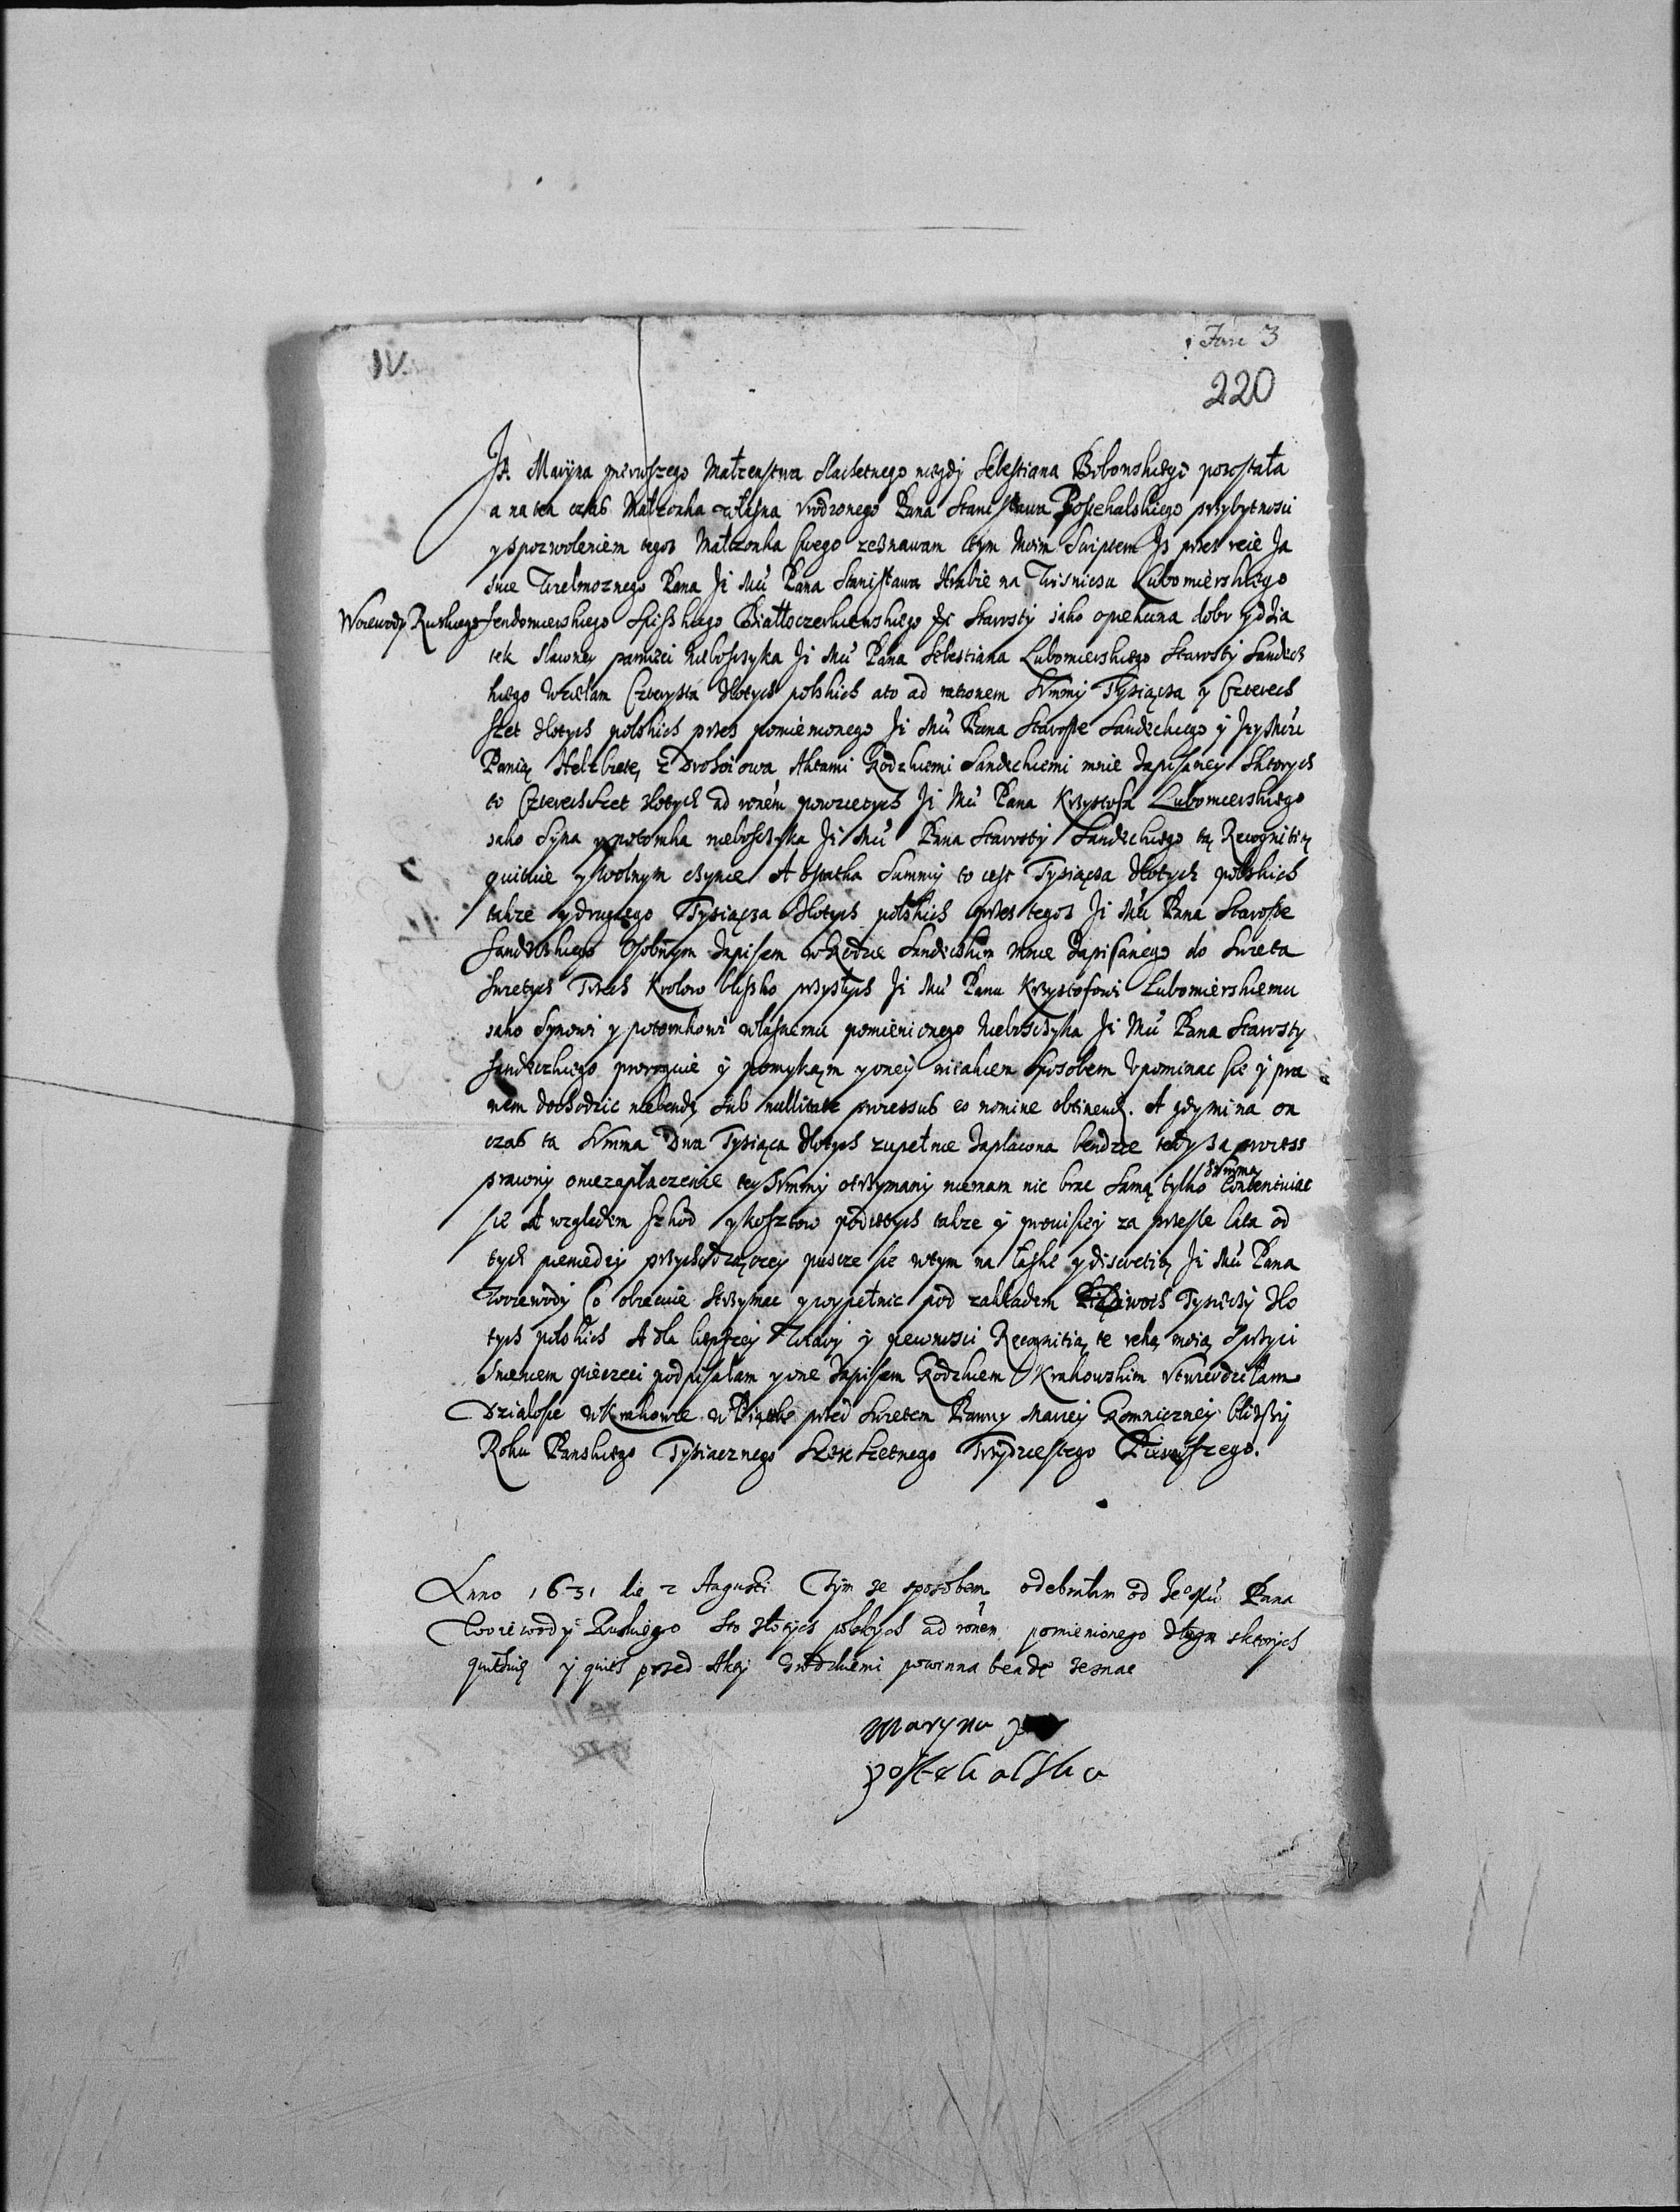 IV.
Fasc 3
220
Ja Maryna pierwszego Małzenstwa Slachetnego niegdy Sebestiana Bobowskiego pozostała
a na ten czas Małzonka własna Vrodzonego Pana Stanisława Postekalskiego przybytnosci
y spozwoleniem tegoz Małzonka swego zeznawam tym Moim Scriptem Jz przez rece Ja
snie Wielmoznego Pana Ji Mci Pana Stanisława Hrabie na Wisniczu Lubomierskiego
Woiewody Ruskiego Sendomierskiego Spiskiego Białłoczerkiewskiego Starosty iako opiekuna dobr y dzia
tek Slawney pamieci nieboszczyka Ji Mci Pana Sebestiana Lubomierskiego Starosty Sandecz
kiego Wzielam Czterysta złotych polskich a to ad rationem Summy Tysiącza y Czterech
szet złotych polskich przez pomienionego Ji Mci Pana Staroste Sandeckiego y Jey Mci
Panią Helzbietę z Aktami Grodzkiemi Sandeckiemi mnie Zapisaney Sktorych
to Czterechszet złotych ad ronem powzietych Ji Mci Pana Krzysztofa Lubomierskiego
iako Syna y potomka nieboszczyka Ji Mci Pana Starosty Sandeckiego tą Recognitią
quituie y wolnym czynie A ostatka Summy to iest Tysiącza złotych polskich
takze y drugiego Tysiącza złotych polskich przez tegoz Ji Mci Pana Staroste
Sandeckiego Osobnym Zapisem w Grodzie Sandeckim mnie Zapisanego do Swieta
Swietych Trzech Krolow blisko przyszłych Ji Mci Panu Krzysztofowi Lubomierskiemu
iako Synowi y potomkowi własnemu pomienionego Nieboszczyka Ji Mci Pana Starosty
Sandeczkiego proroguie y pomykam y oney niiakiem sposobem Vpominac sie y pra
wem dochodzic niebendę sub nullitate processus eo nomine obtinendi. A gdy mi na on
czas ta Summa Dwa Tysiąca złotych zupełnie Zapłacona bendzie tedy za process
prawny o niezapłaczenie tey Summy otrzymany niemam nic brac samą tylko Summą Contentuiac
sie A wzgledem szkod y kosztow podietych takze y prowisiey za przeszłe lata od
tych pieniedzy przychodzączey puscze sie w tym na łaske y discretią Ji Mci Pana
Woiewody Co obiecuie strzymac y wypełnic pod zakładem Tysieczy Zło
tych polskich A dla liepszey Wiary y pewnosci Recognitią te reką moią sprzyci
snieniem pieczeci podpisałam y one Zapisem Grodzkiem Krakowskim Vtwierdziłam
Działosie w Krakowie w Piątek przed Swietem Panny Mariey Gromniczney blizszy
Roku Panskiego Tysiacznego Szescsetnego Trzydziestego Pierwszego.
Anno 1631 die 2 Augusti Tym ze sposobem odebrałam od Je Mci Pana
Woiewody Ruskiego sto złotych polskych ad ronem pomienionego długu sktorych
quituię y quit przed Akty Grodzkiemi powinna bendę zeznac
Maryna
postekalska